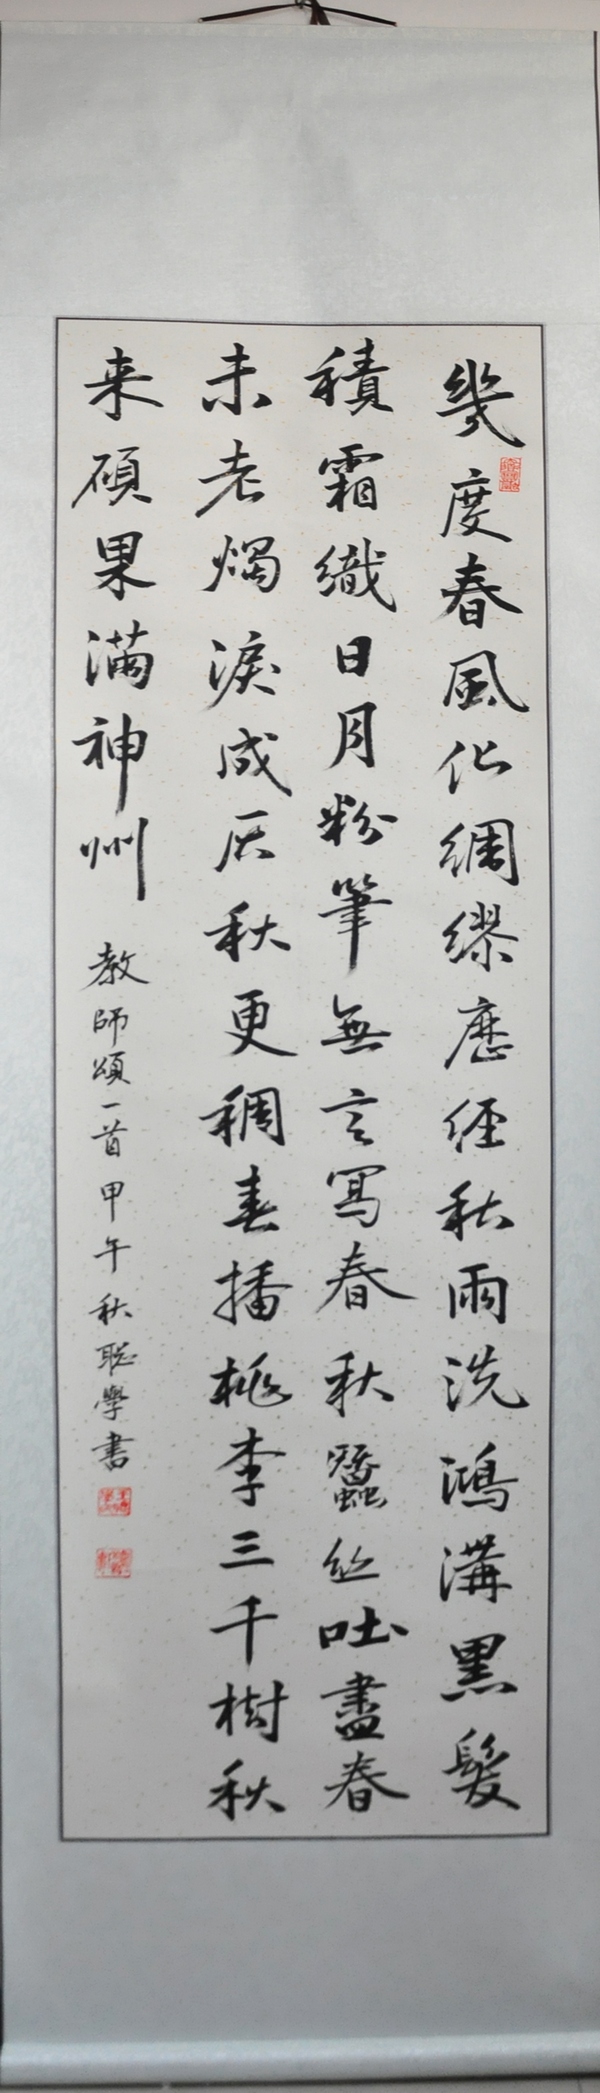 幾度春風化綢繆歷經秋雨洗鴻溝黑髮
積霜織日月粉筆無言寫春秋蠶丝吐盡春
未老燭淚成灰秋更稠春播桃李三千樹秋
来碩果滿神州
教師頌一首甲午秋聪學書